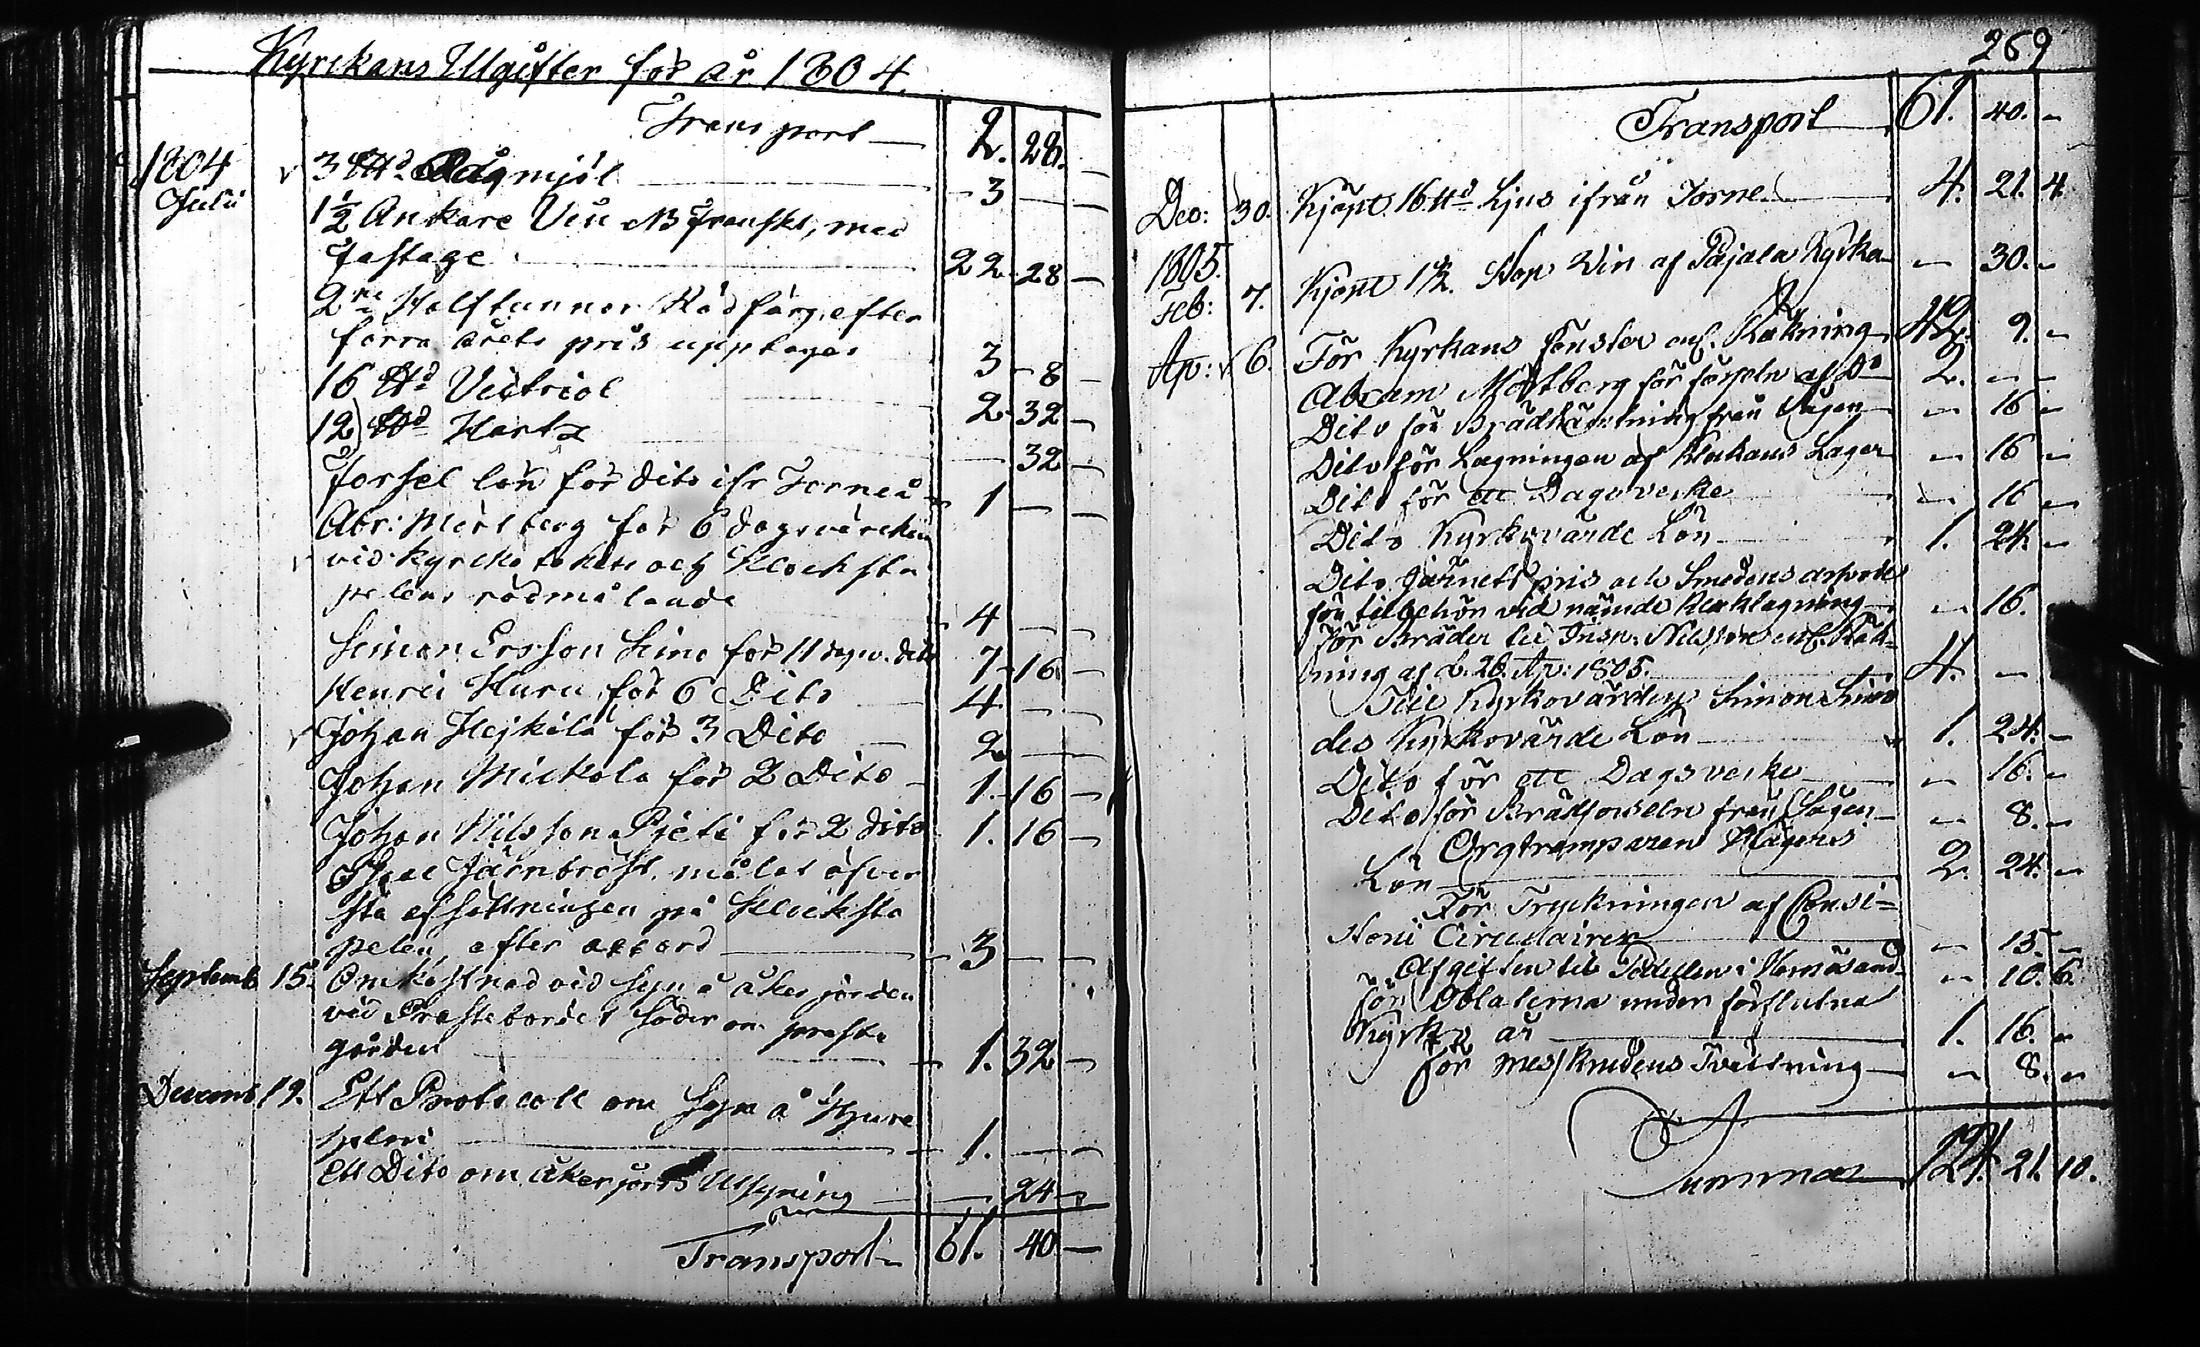 Kyrckans Utgifter för år 1804.
Transport 2. 28. —
1804
Juli 3 ℔d Rågmjöl — 3 — —
1½ Ankare Vin NB franskt, med
fastage 22. 28 —
2ne Halftunnor Rödfärg efter
förra årets pris upptages 3 - 8 —
16 ℔d Victriol 2. 32 —
12 ℔d Hartz — 32 —
Forsel lön för dito ifr Torneå 1 — —
Abr: Mörtberg för 6 dagsvercken
vid kyrcko takets och Klocksta
pelens rödmålande 4 — —
Simon Ersson Simo för 11 dagsv. dito 7 - 16 —
Henric Huru för 6 Dito 4 — —
Johan Hejkilä för 3 Dito 2 — —
Johan Mickola för 2 Dito 1. 16 —
Johan Nilsson Pjeti för 2 dito 1. 16 —
Isaac Järnbröst, målat öfver
sta afsättningen på Klocksta
pelen, efter accord 3 — —
Septemb 15. Omkostnad vid syn å åker jorden
vid Prästebordet söder om presta
gården 1. 32 —
Decemb 19. Ett Protocoll om syn å
1. — —
ett Dito om åkerjords Utsyning — 24 —
Transport 61. 40 —
269
Transport 61. 40. —
Dec: 30. Kjöpt 16 ℔d Ljus ifrån Torne 4. 21. 4
1805.
Feb: 7. Kjöpt 1½. Stop Win af Pajala Kyrka — 30. —
Ap: 6. För Kyrkans fönster enl. Räkning 42. 9. —
Abram Mörtberg för forseln af Do 2. — —
Dito för Brädhämtning från Sågen — 16 —
Dito för Lagningen af Klokans Lager — 16 —
Dito för ett Dagsverke — 16 —
Dito Kyrkovärde Lön 1. 24. —
Dito Järnets pris och Smedens arbete
för tillbehör vid nämde Klocklagning — 16. —
För Bräder til Insp. Nilsson enl. Räk-
ning af d. 26. Ap: 1805. 4. —
Till Kyrkovärden Simon Simo
des Kyrkovärde Lön 1. 24. —
Dito för ett Dagsverke — 16. —
Dito för Brädforseln från Sågen — 8. —
Orgtramparen Mågens
Lön 2. 24. —
För Tryckningen af Consi=
storii Circulairer — 15. —
Afgiften til Pedellen i Hernösand — 10. 6.
för Oblaterna under förflutna
Kyrko år 1. 16. —
för messkrudens Tvättning — 8. —
Summa 124. 21. 10.